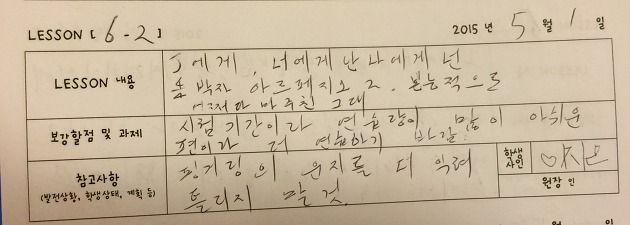 LESSON [ 6-2 ] 2015 년 5 월 1 일
LESSON 내용
J에게, 너에게난 나에게 넌
8 박자 아르페지오 2. 본능적으로
어쩌다 마주친 그대
보강할점 및 과제
시험 기간이라 연습량이 많이 아쉬운
편이라 더 연습하기 바람
참고사항
(발전상황, 학생상태, 계획 등)
핑거링의 운지를 더 익혀
틀리지 말 것.
학생
사인
원장 인
월 일